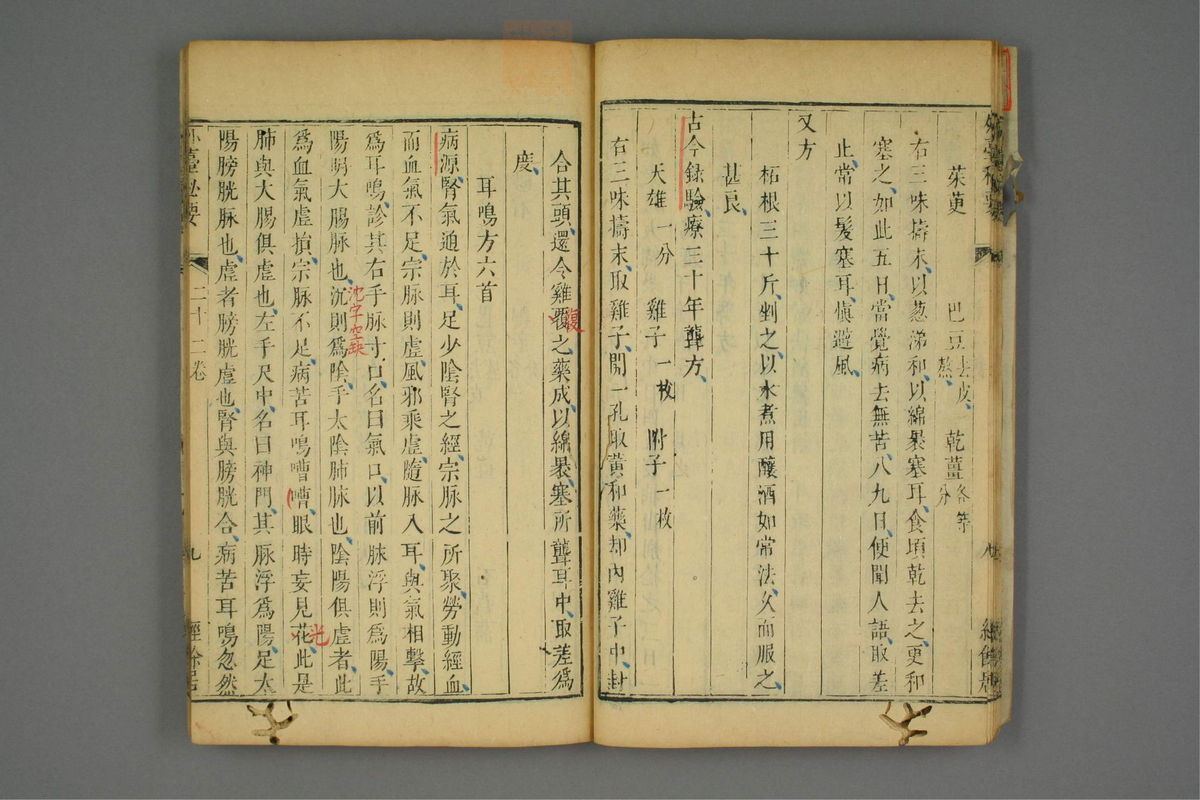 茱萸 巴豆去皮熬 乾薑各等分
右三味擣末以葱涕和以綿褁塞耳食頃乾去之更和
塞之如此五日當覺病去無苦八九日便聞人語取差
止常以髮塞耳慎避風
又方
柘根三十斤剉之以水煮用釀酒如常法久而服之
甚良
古今録驗療三十年聾方
天雄一分 雞子一枚 附子一枚
右三味擣末取雞子開一孔取黄和藥却内雞子中封
合其頭還令雞覆之藥成以綿褁塞所聾耳中取差爲
復
度
耳鳴方六首
病源腎氣通於耳足少陰腎之經宗脉之所聚勞動經血
而血氣不足宗脉則虚風邪乘虚隨脉入耳與氣相擊故
爲耳鳴診其右手脉寸口名曰氣口以前脉浮則爲陽手
陽明大腸脉也沉則爲陰手太陰肺脉也陰陽俱虚者此
沈字空缺
爲血氣虚損宗脉不足病苦耳鳴嘈嘈眼時妄見花此是
光
肺與大腸俱虚也左手尺中名曰神門其脉浮爲陽足太
陽膀胱脉也虚者膀胱虚也腎與膀胱合病苦耳鳴忽然
外臺秘要 二十二卷 九 經餘居